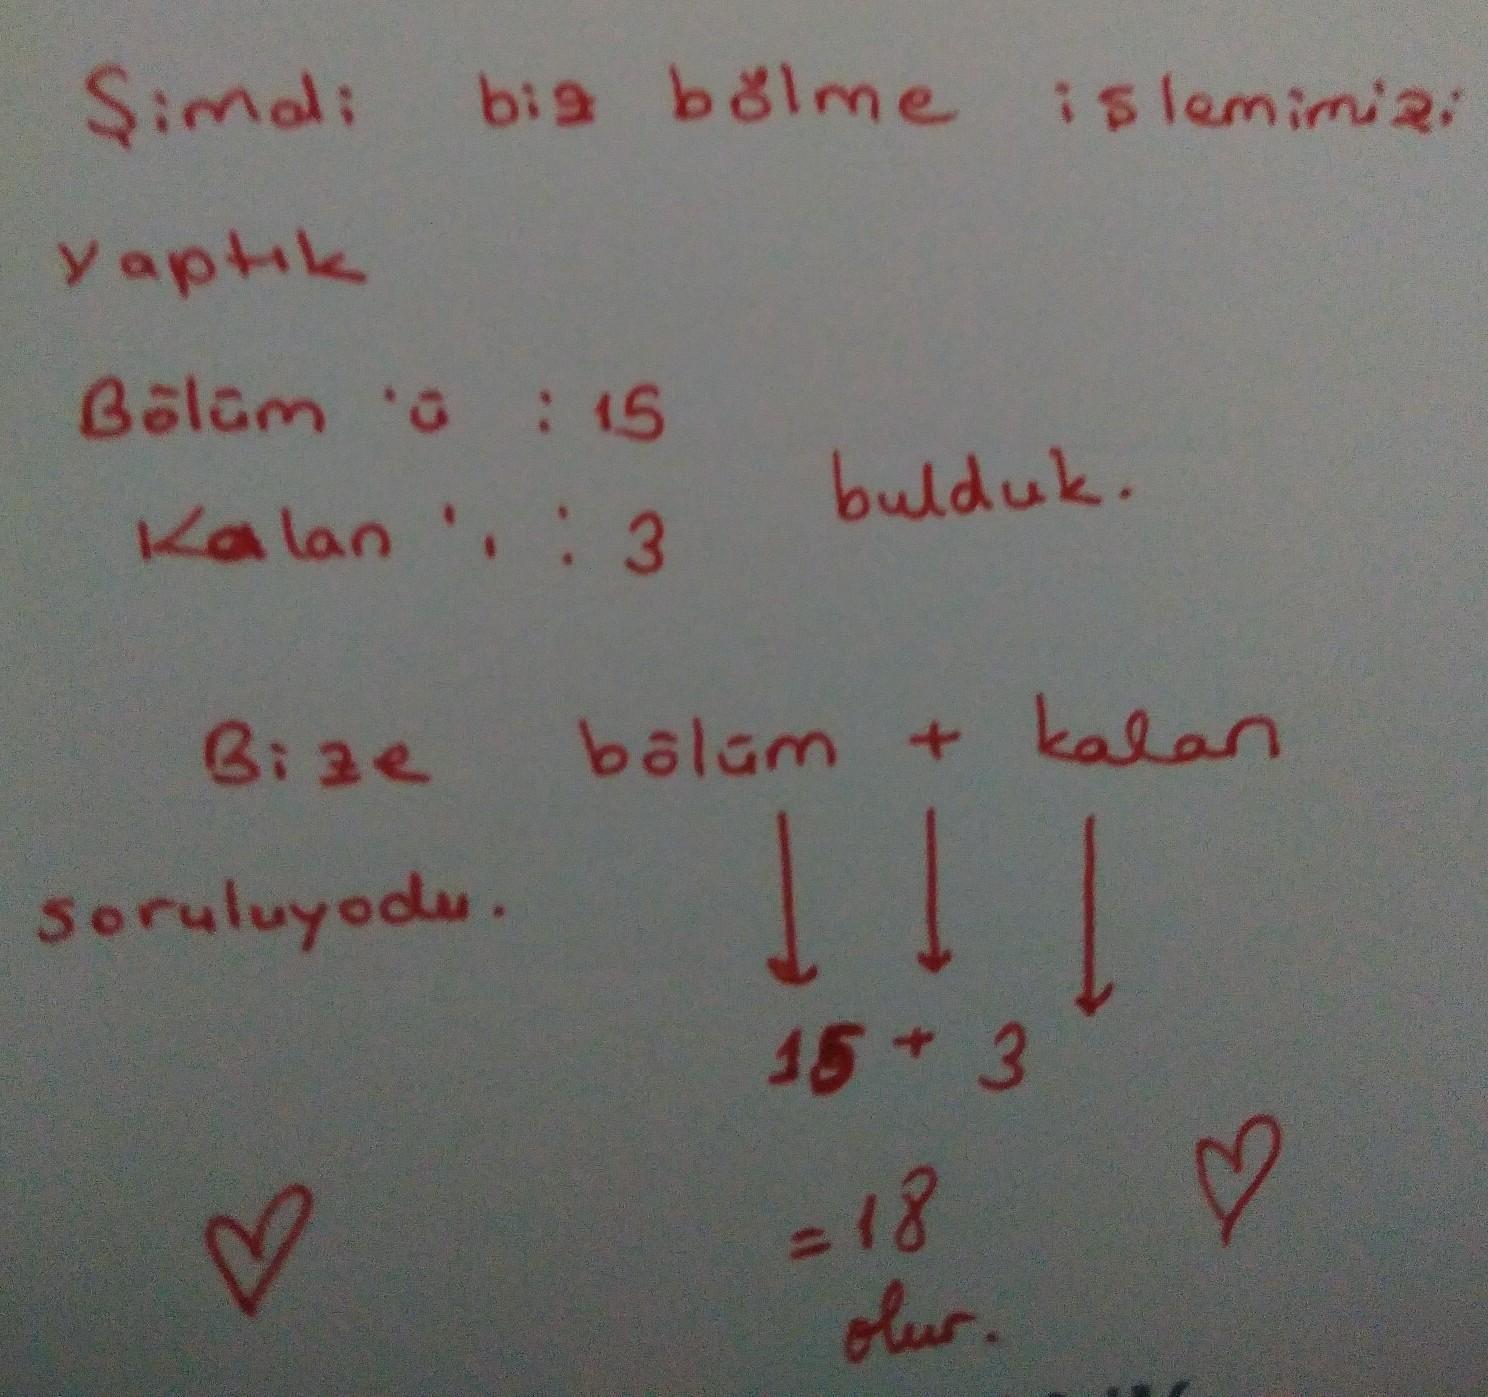 Şimdi biz bölme işlemimizi
yaptık
Bölüm 'ü : 15
Kalan 'ı : 3
bulduk.
Bize bölüm + kalan
soruluyodu.
15 + 3
= 18
olur.